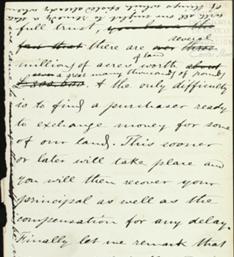 full trust,
fact that there are several
millions of acres of land worth
a great many thousands of pounds
& the only difficulty
is to find a purchaser ready
to exchange money for some
of our land. This sooner
or later will take place and
you will then recover your
principal as well as the
compensation for any delay.
Finally let me remark that